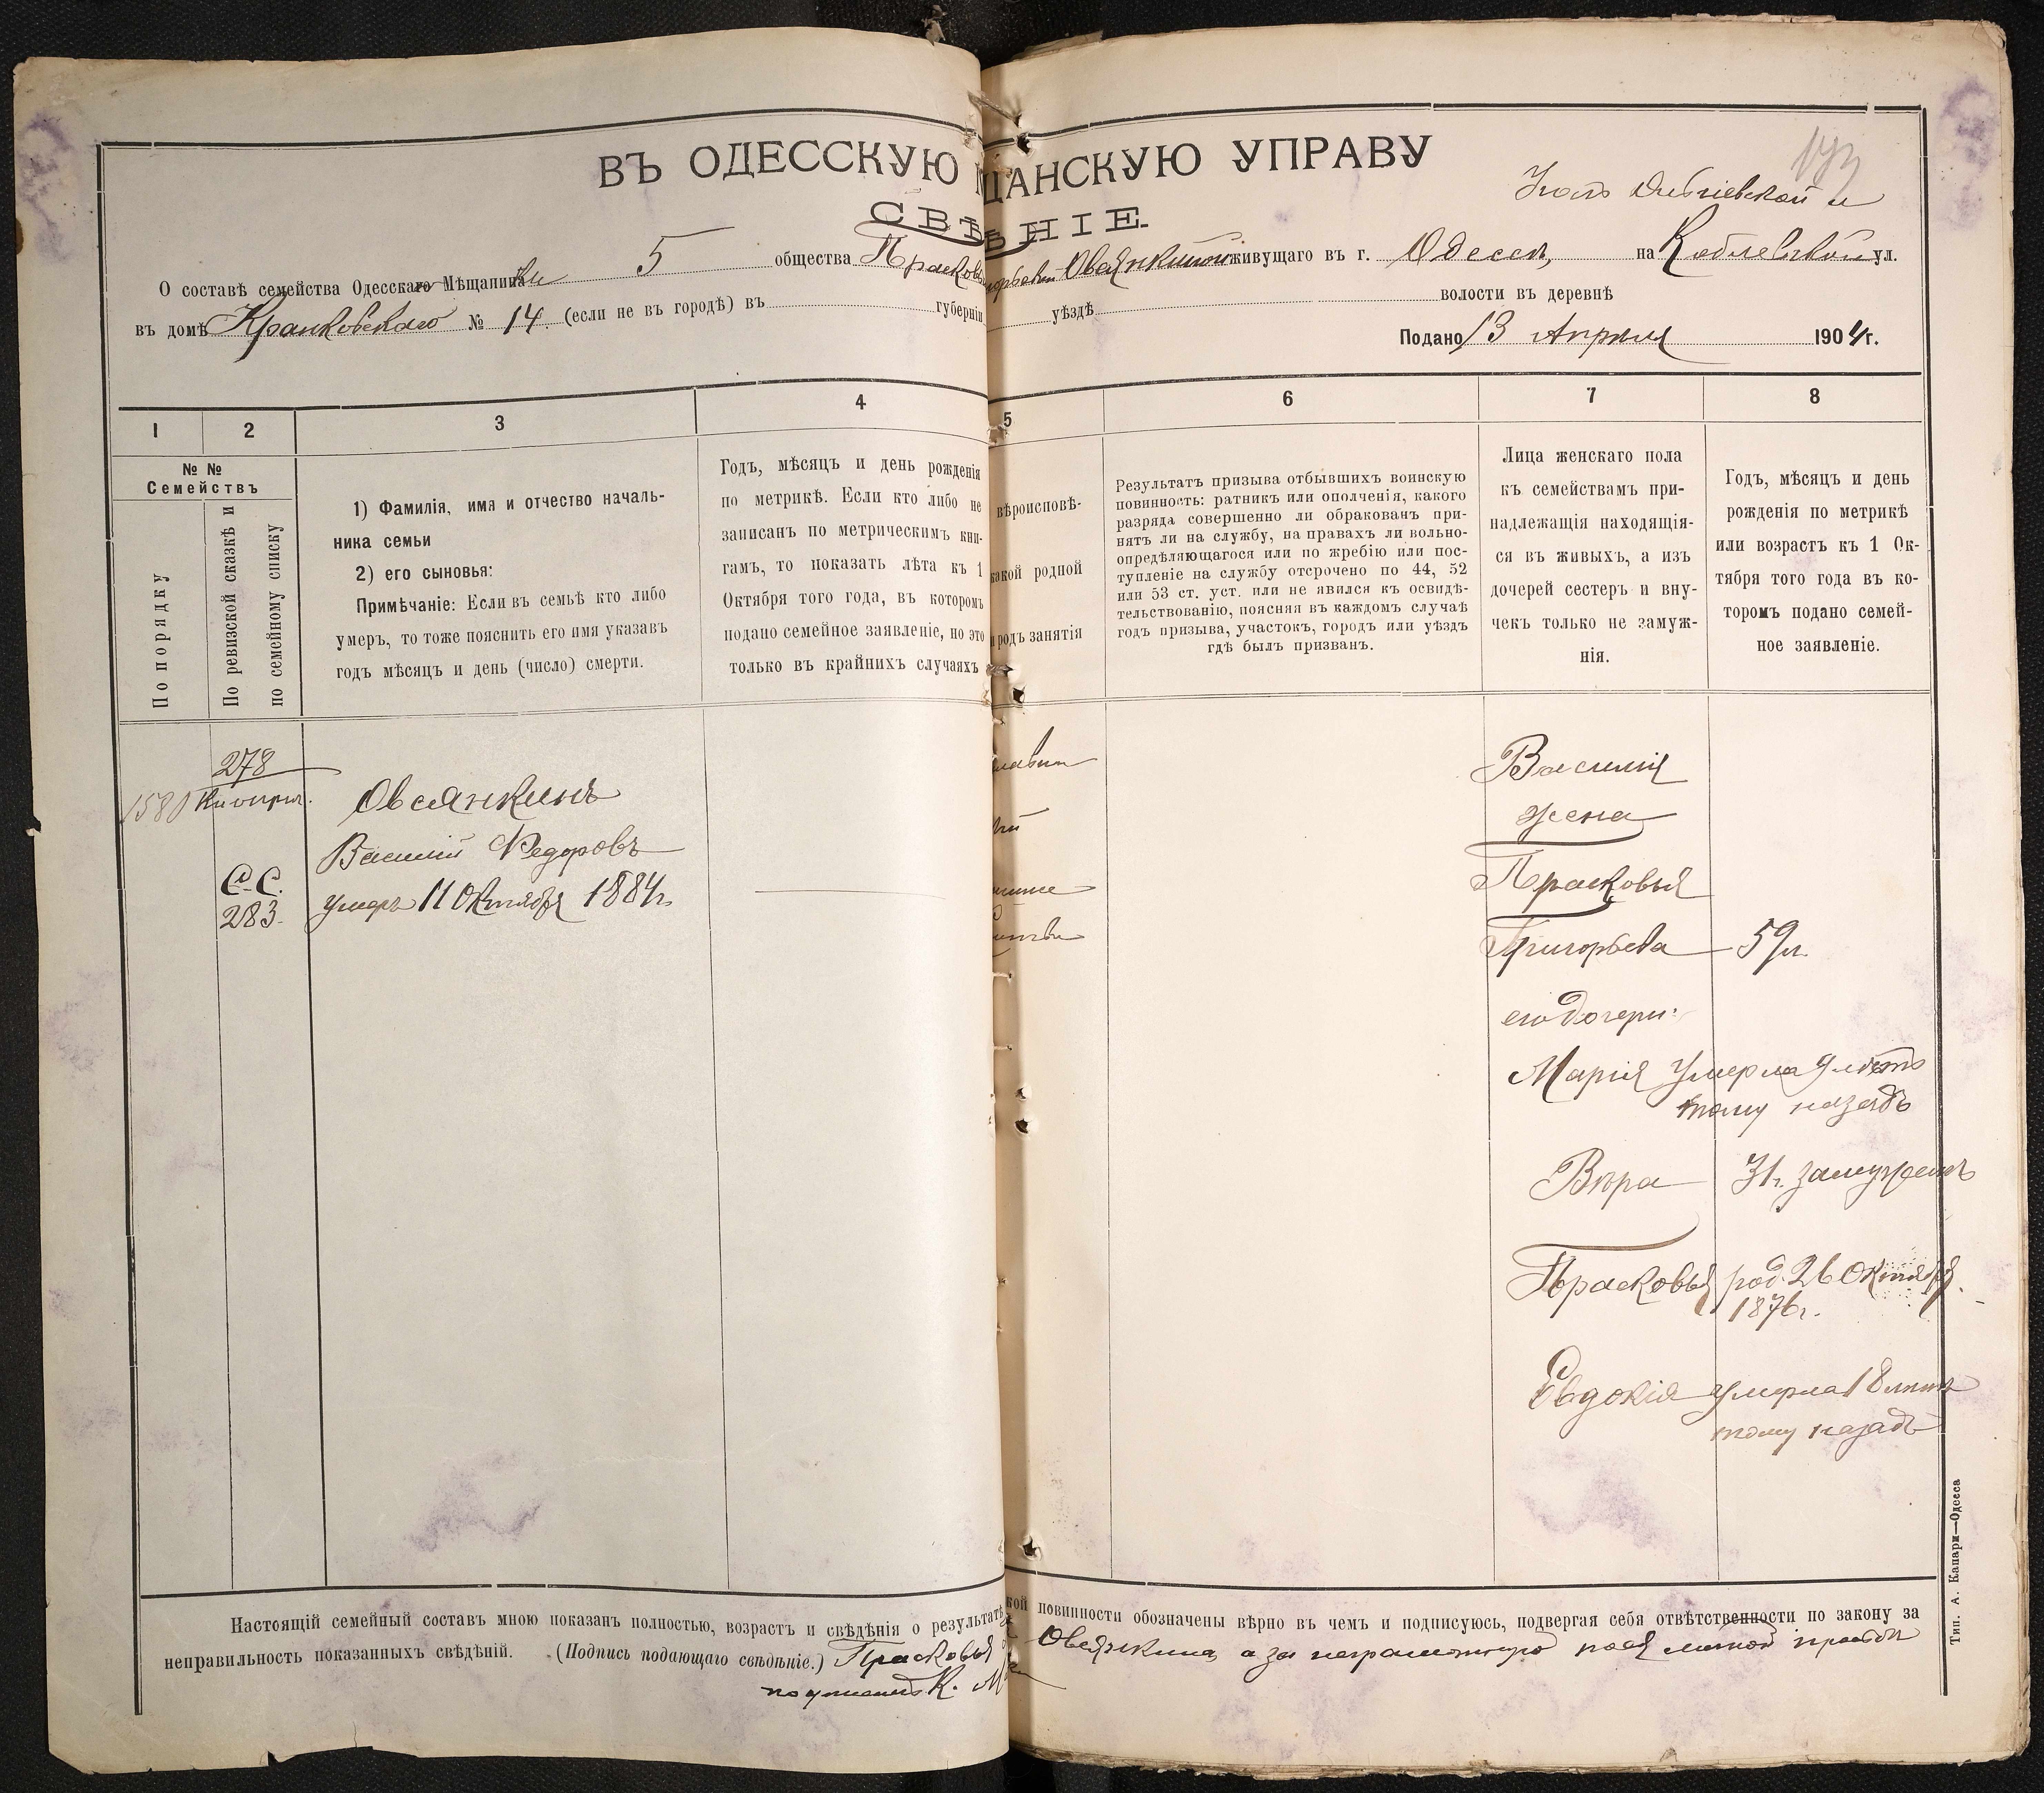 ВЪ ОДЕССКУЮ ЩАНСКУЮ УПРАВУ
СВѢ ѢНІЕ.
и
О составѣ семейства Одесскаго Мѣщанина ки 5 общества Прасков орьевны Овсянкиной живущаго въ г. Одессѣ, на Коблевской ул.
въ домѣ № 14 (если не въ городѣ) въ губерніи уѣздѣ волости въ деревнѣ
Подано 13 Апрѣля 1904 г.
1 2 3 4 5 6 7 8
№ №
Семействъ
По порядку
По ревизской сказкѣ и
по семейному списку
1) Фамилія, имя и отчество началь-
ника семьи
2) его сыновья:
Примѣчаніе: Если въ семьѣ кто либо
умеръ, то тоже пояснить его имя указавъ
годъ мѣсяцъ и день (число) смерти.
Годъ, мѣсяцъ и день рожденія
по метрикѣ. Если кто либо не
записанъ по метрическимъ кни-
гамъ, то показать лѣта къ 1
Октября того года, въ которомъ
подано семейное заявленіе, но это
только въ крайнихъ случаяхъ
вѣроисповѣ-
какой родной
и родъ занятія
Результатъ призыва отбывшихъ воинскую
повинность: ратникъ или ополченія, какого
разряда совершенно ли обракованъ при-
нятъ ли на службу, на правахъ ли вольно-
опредѣляющагося или по жребію или пос-
тупленіе на службу отсрочено по 44, 52
или 53 ст. уст. или не явился къ освидѣ-
тельствованію, поясняя въ каждомъ случаѣ
годъ призыва, участокъ, городъ или уѣздъ
гдѣ былъ призванъ.
Лица женскаго пола
къ семействамъ при-
надлежащія находящія-
ся въ живыхъ, а изъ
дочерей сестеръ и вну-
чекъ только не замуж-
нія.
Годъ, мѣсяцъ и день
рожденія по метрикѣ
или возрастъ къ 1 Ок-
тября того года въ ко-
торомъ подано семей-
ное заявленіе.
278
1580
С.С.
283
Овсянкинъ
Василій Федоровъ
умеръ 11 Октября 1884 г.
Василія
жена
Прасковья
Григорьева 59 л.
его дочери:
Марія умерла 9 лѣтъ
тому назадъ
Вѣра 31 г. замужемъ
Прасковья род. 26 Октября
1876 г.
Евдокія умерла 18 лѣтъ
тому назадъ
Настоящій семейный составъ мною показанъ полностью, возрастъ и свѣдѣнія о результатѣ кой повинности обозначены вѣрно въ чемъ и подписуюсь, подвергая себя отвѣтственности по закону за
неправильность показанныхъ свѣдѣній. (Подпись подающаго свѣдѣніе.) Прасковья Овсянкина, а за неграмотную по ея личной просьбѣ
К. М
Тип. А. Капари—Одесса